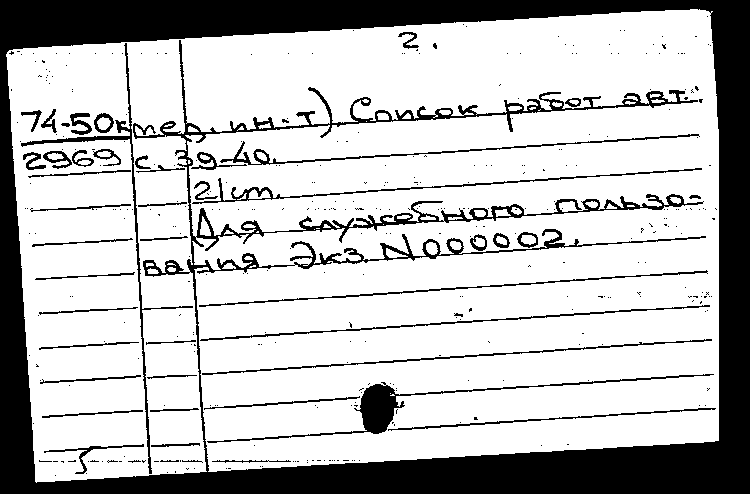 2.
74-50к мед. ин-т). Список работ авт.:
2969 с. 39-40.
21 см.
Для служебного пользо-
вания. Экз. N000002.
5